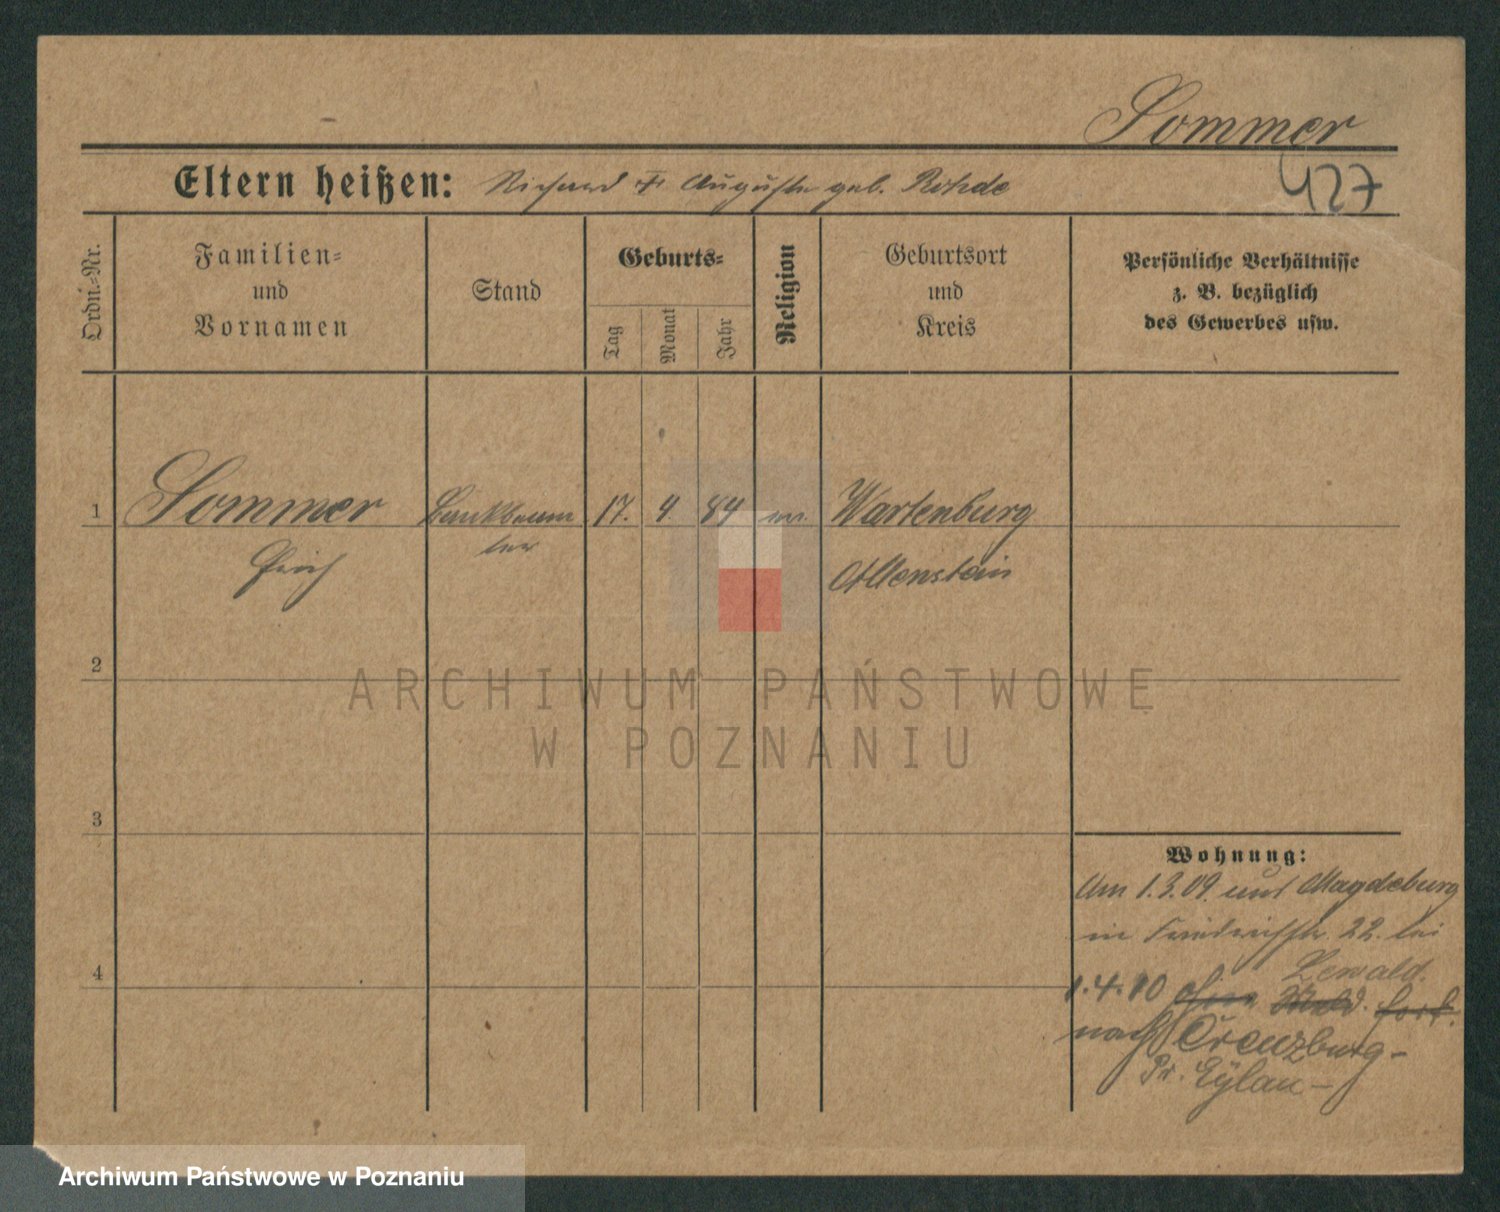 Sommer
427
Eltern heißen: Richard u. Auguste geb. Rohde
Ordn.-Nr.
Familien-
und
Vornamen
Stand
Geburts-
Tag
Monat
Jahr
Religion
Geburtsort
und
Kreis
Persönliche Verhältnisse
z. B. bezüglich
des Gewerbes usw.
1 Sommer Bankbeam 17. 4. 84 Wartenburg
ter
Erich Allenstein
2
3
4
Wohnung:
Am 1.3.09. aus Magdeburg
in Friedrichstr. 22. bei
Lewald.
1.4.10 fort.
nach Creuzburg-
Pr. Eylau-
ARCHIWUM PAŃSTWOWE
W POZNANIU
Archiwum Państwowe w Poznaniu